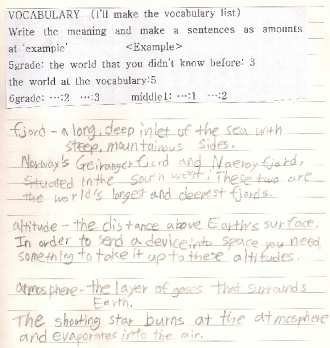 VOCABULARY (I'll make the vocabulary list)
Write the meaning and make a sentences as amounts
at 'example' <Example>
5grade: the world that you didn't know before: 3
the world at the vocabulary:5
6grade: ···:2 ···:3 middle1: ···:1 ···:2
fjord - a long, deep inlet of the sea with
steep, mountainous sides.
Norway's Geiranger fjord and Naeroy fjord,
Situated in the south west. These two are
the world's longest and deepest fjords.
altitude - the distance above Earth's surface.
In order to send a device into space you need
something to take it up to these altitudes.
atmosphere - the layer of gases that surrounds
Earth.
The shooting star burns at the atmosphere
and evaporates into the air.